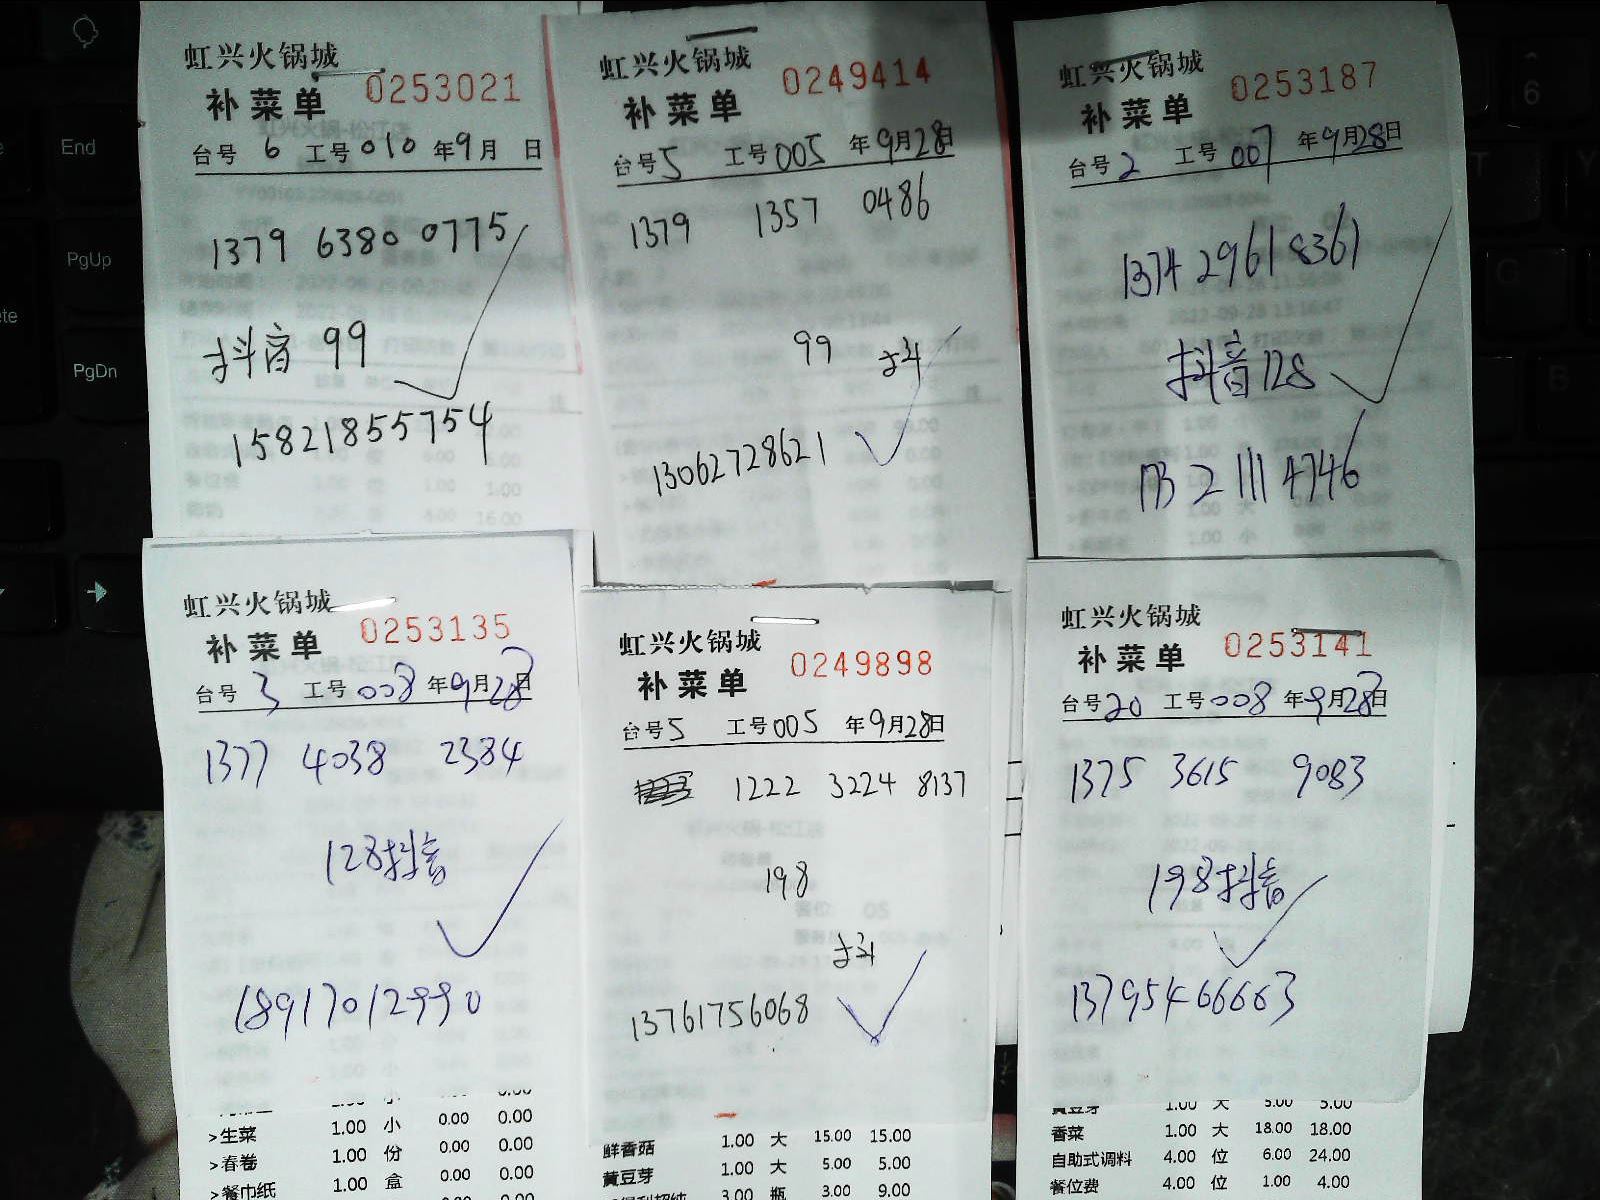 虹兴火锅城
补菜单 0253021
台号 6 工号 010 年 9月 日
1379 6380 0775
抖音 99
15821855754
虹兴火锅城
补菜单 0249414
台号 5 工号 005 年 9月 28日
1379 1357 0486
99 抖
13062728621
虹兴火锅城
补菜单 0253187
台号 2 工号 007 年 9月 28日
1374 2961 8361
抖音 128
173 2111 4746
虹兴火锅城
补菜单 0253135
台号 3 工号 008 年 9月 28日
1377 4038 2384
128抖音
18917012990
>生菜 1.00 小 0.00 0.00
>春卷 1.00 份 0.00 0.00
>餐巾纸 1.00 盒 0.00 0.00
虹兴火锅城
补菜单 0249898
台号 5 工号 005 年 9月 28日
1222 3224 8137
198
抖
13761756068
鲜香菇 1.00 大 15.00 15.00
黄豆芽 1.00 大 5.00 5.00
3.00 瓶 3.00 9.00
虹兴火锅城
补菜单 0253141
台号 20 工号 008 年 9月 28日
1375 3615 9083
198抖音
13795466663
黄豆芽 1.00 大 5.00 5.00
香菜 1.00 大 18.00 18.00
自助式调料 4.00 位 6.00 24.00
餐位费 4.00 位 1.00 4.00
End
PgUp
PgDn